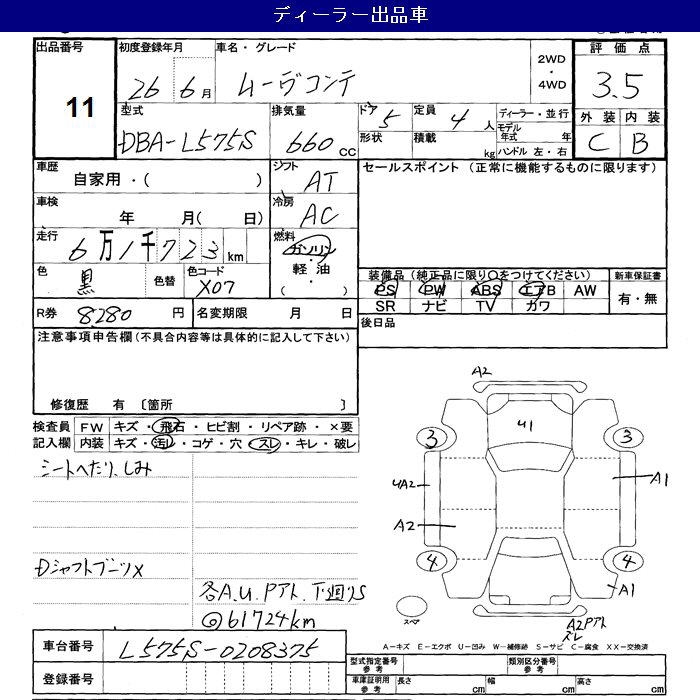 ディーラー出品車
出品番号 11
初度登録年月 26年 6月
車名・グレード ムーヴコンテ
2WD・4WD
評価点 3.5
型式 DBA-L575S
排気量 660cc
ドア 5 形状
定員 4人 積載 kg
ディーラー・並行
モデル年式 年
ハンドル 左・右
外装 C 内装 B
車歴 自家用・( )
シフト AT
セールスポイント (正常に機能するものに限ります)
車検 年 月( 日)
冷房 AC
走行 6万1千723km
燃料 ガソリン・軽油・( )
色 黒 色替 色コード X07
装備品(純正品に限り○をつけてください)
新車保証書 有・無
PS PW ABS エアB AW
SR ナビ TV カワ
R券 8280円
名変期限 月 日
後日品
注意事項申告欄(不具合内容等は具体的に記入して下さい)
修復歴 有 〔箇所 〕
検査員記入欄
FW キズ・飛石・ヒビ割・リペア跡・×要
内装 キズ・汚レ・コゲ・穴・スレ・キレ・破レ
シートへたり、しみ
Dシャフトブーツx
各A.U.Pアト.下廻りS
@61724km
A2
3 3
U1
UA2
A1
A2
4 4
A1
スペア
A2Pアト
ズレ
A-キズ E-エクボ U-凹み W-補修跡 S-サビ C-腐食 XX-交換済
車台番号 L575S-0208375
登録番号
型式指定番号 参考
類別区分番号 参考
車庫証明用 参考
長さ cm 幅 cm 高さ cm